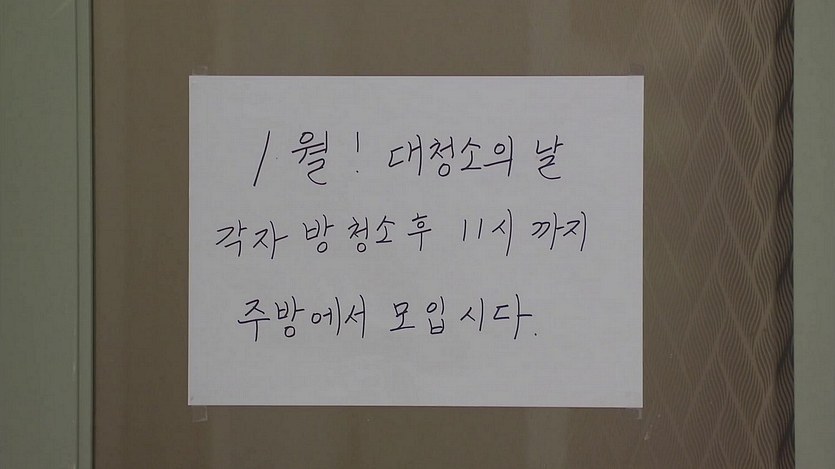 1월! 대청소의 날
각자 방 청소후 11시 까지
주방에서 모입시다.